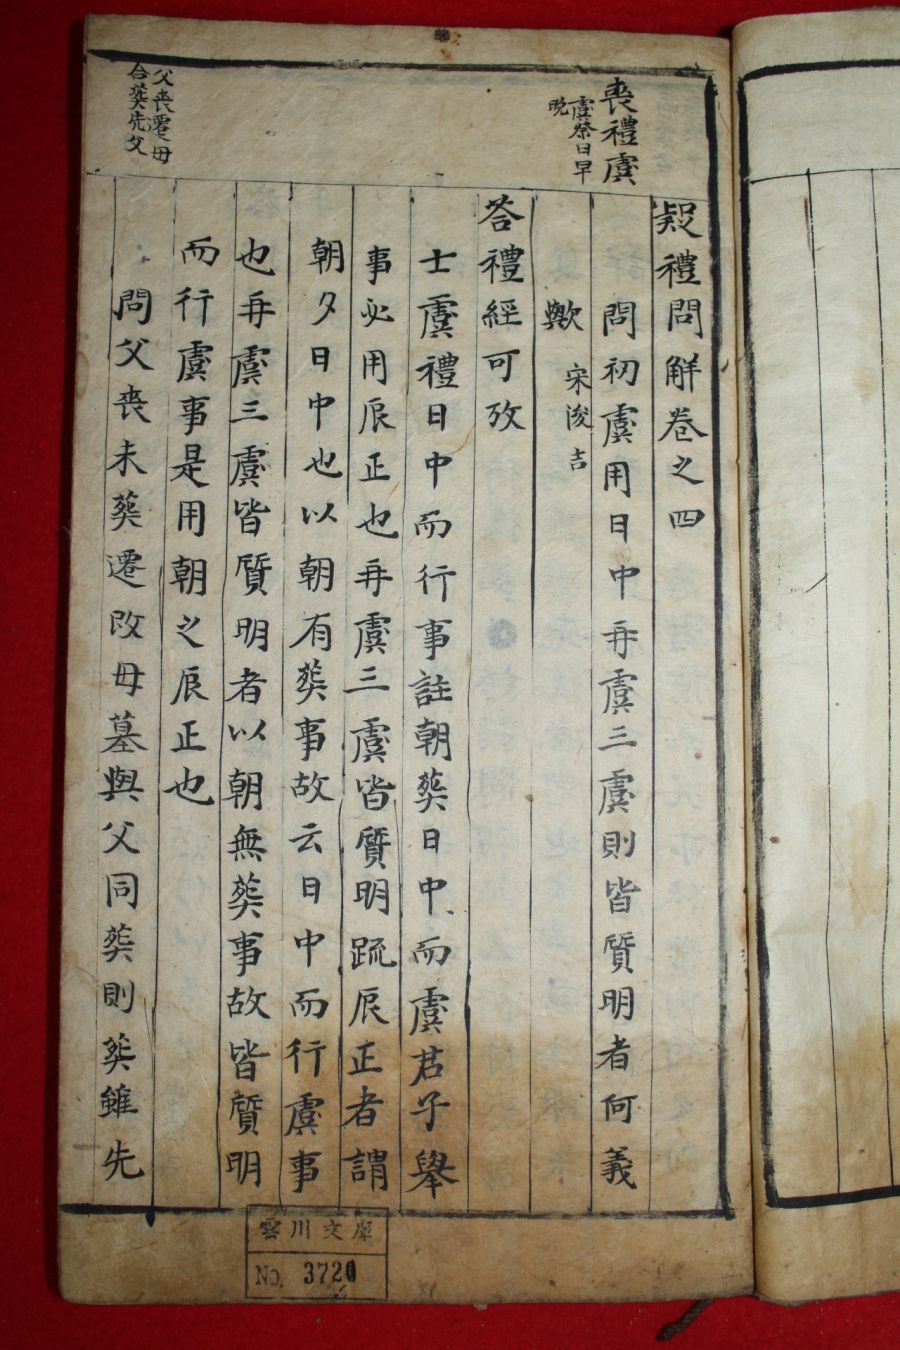 喪禮虞
虞祭日早
晩
疑禮問解卷之四
問初虞用日中再虞三虞則皆質明者何義
歟
宋浚吉
答禮經可攷
士虞禮日中而行事註朝葬日中而虞君子舉
事必用辰正也再虞三虞皆質明䟽辰正者謂
朝夕日中也以朝有葬事故云日中而行虞事
也再虞三虞皆質明者以朝無葬事故皆質明
而行虞事是用朝之辰正也
父喪遷母
合葬先父
問父喪未葬遷改母墓與父同葬則葬雖先
雲川文庫
No. 3720